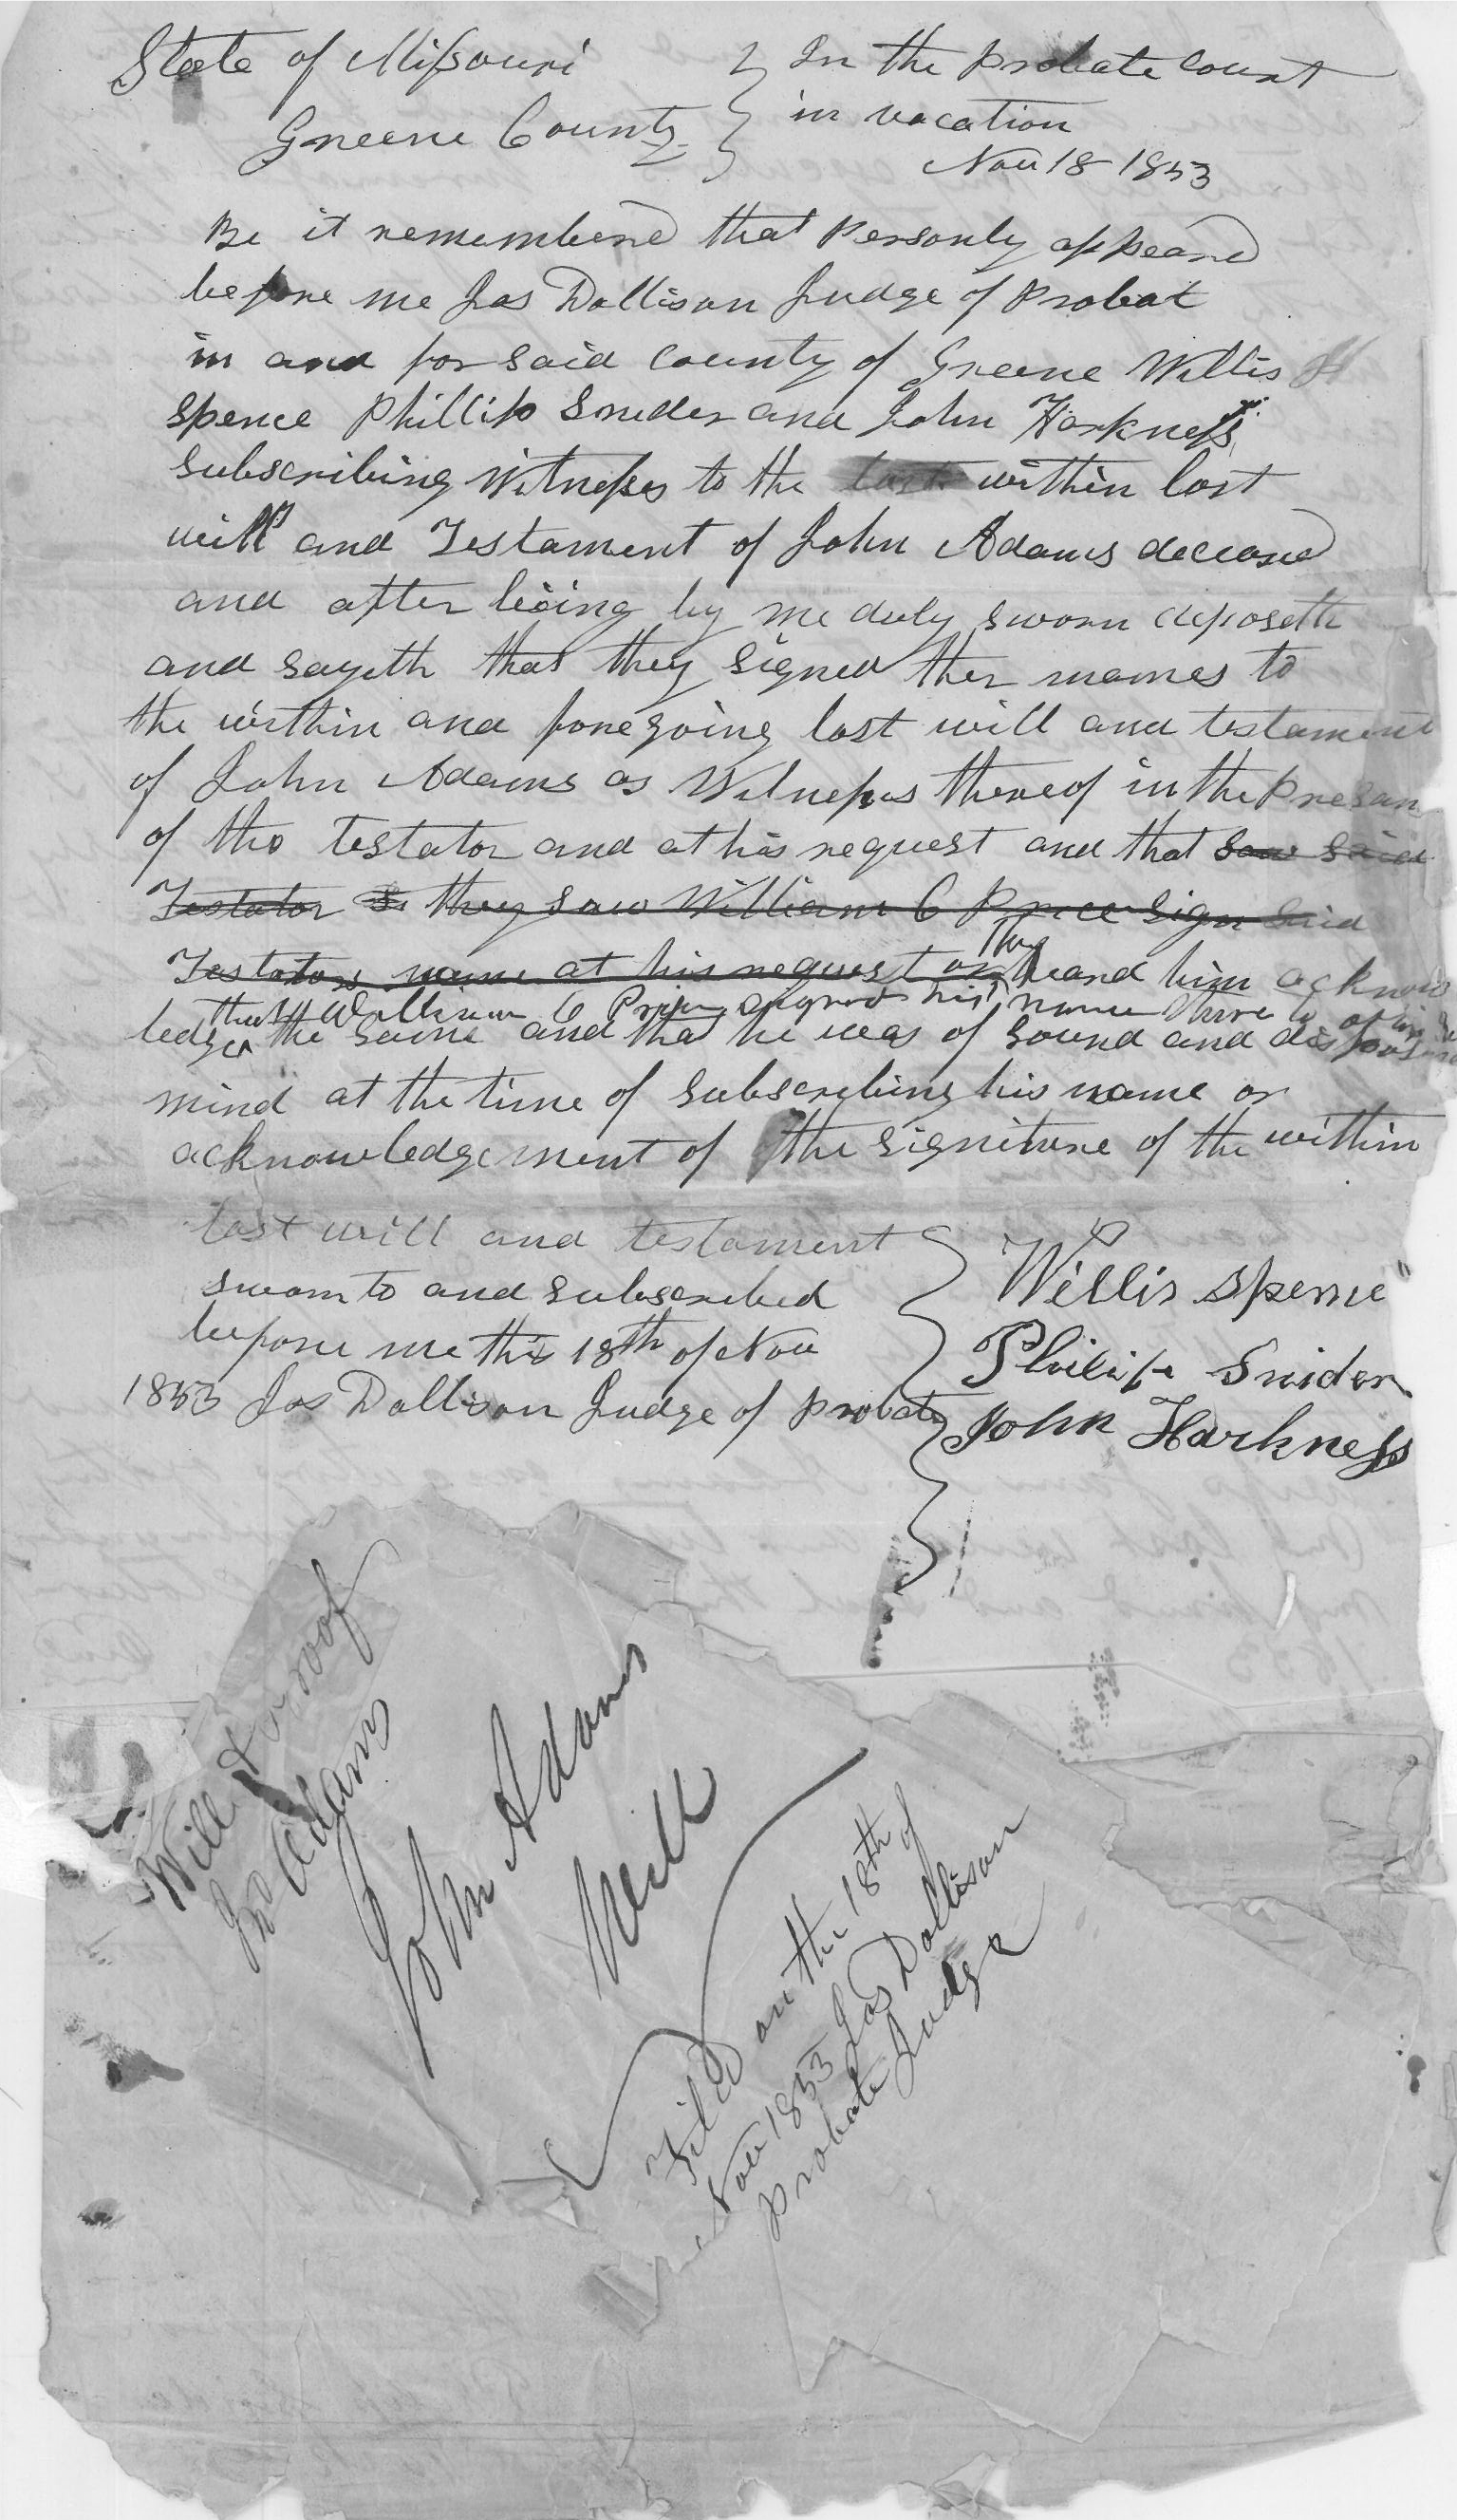 State of Missouri } In the probate court
Greene County } in vacation
Nov 18 1853
Be it remembered that Personly appeard
before me Jas Dollison Judge of Probat
in and for said county of Greene Willis
Spence Phillip Snider and John Harkness
subscribing Witnesses to the last within last
will and Testament of John Adams deceased
and after being by me duly sworn deposeth
and sayeth that they signed ther names to
the within and foregoing last will and testament
of John Adams as Witnesses thereof in the Presan
of the Testator and at his request and that saw said
Testator they saw William C Price sign said
Testators name at his request or they heard him acknow
that William C Price signed his name there to at his
ledge the same and that he was of sound and disposing
mind at the time of subscribing his name or
acknowledgement of the signiture of the within
last will and testament
sworn to and subscribed
before me this 18th of Nov
1853 Jas Dollison Judge of probate
Willis Spence
Philip Snider
John Harkness
Will & proof
Jno Adams
John Adams
Will
Filed on the 18th of
Nov 1853 Jas Dollison
Probate Judge